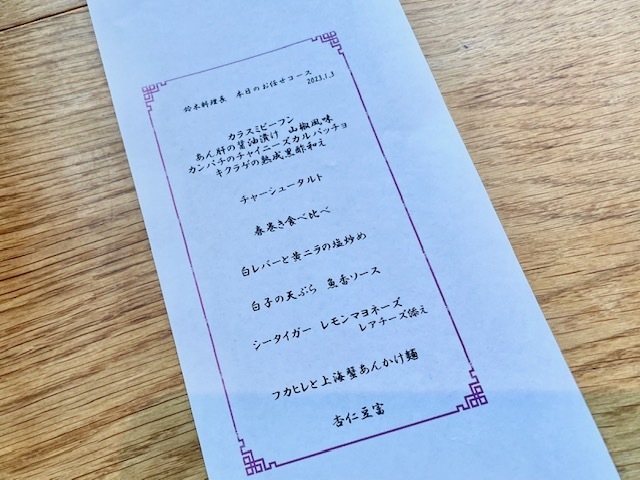 鈴木料理長 本日のお任せコース
2023.1.3
カラスミビーフン
あん肝の醤油漬け 山椒風味
カンパチのチャイニーズカルパッチョ
キクラゲの熟成黒酢和え
チャーシュータルト
春巻き食べ比べ
白レバーと黄ニラの塩炒め
白子の天ぷら 魚香ソース
シータイガー レモンマヨネーズ
レアチーズ添え
フカヒレと上海蟹あんかけ麺
杏仁豆富